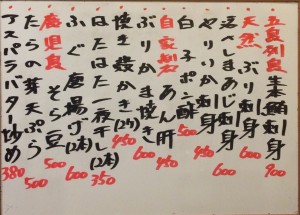 五島列島 生本鮪刺身 900
天然 ぶり刺身 600
活〆しまあじ刺身 600
やりいか刺身
白子ポン酢 500
自家製 あん肝 450
ぶりかま焼き 600
焼き牡かき(2ケ) 450
はたはた一夜干し(2本) 350
ふぐ唐揚げ(2本) 600
鹿児島 そら豆 500
たらの芽天ぷら 500
アスパラバター炒め 380